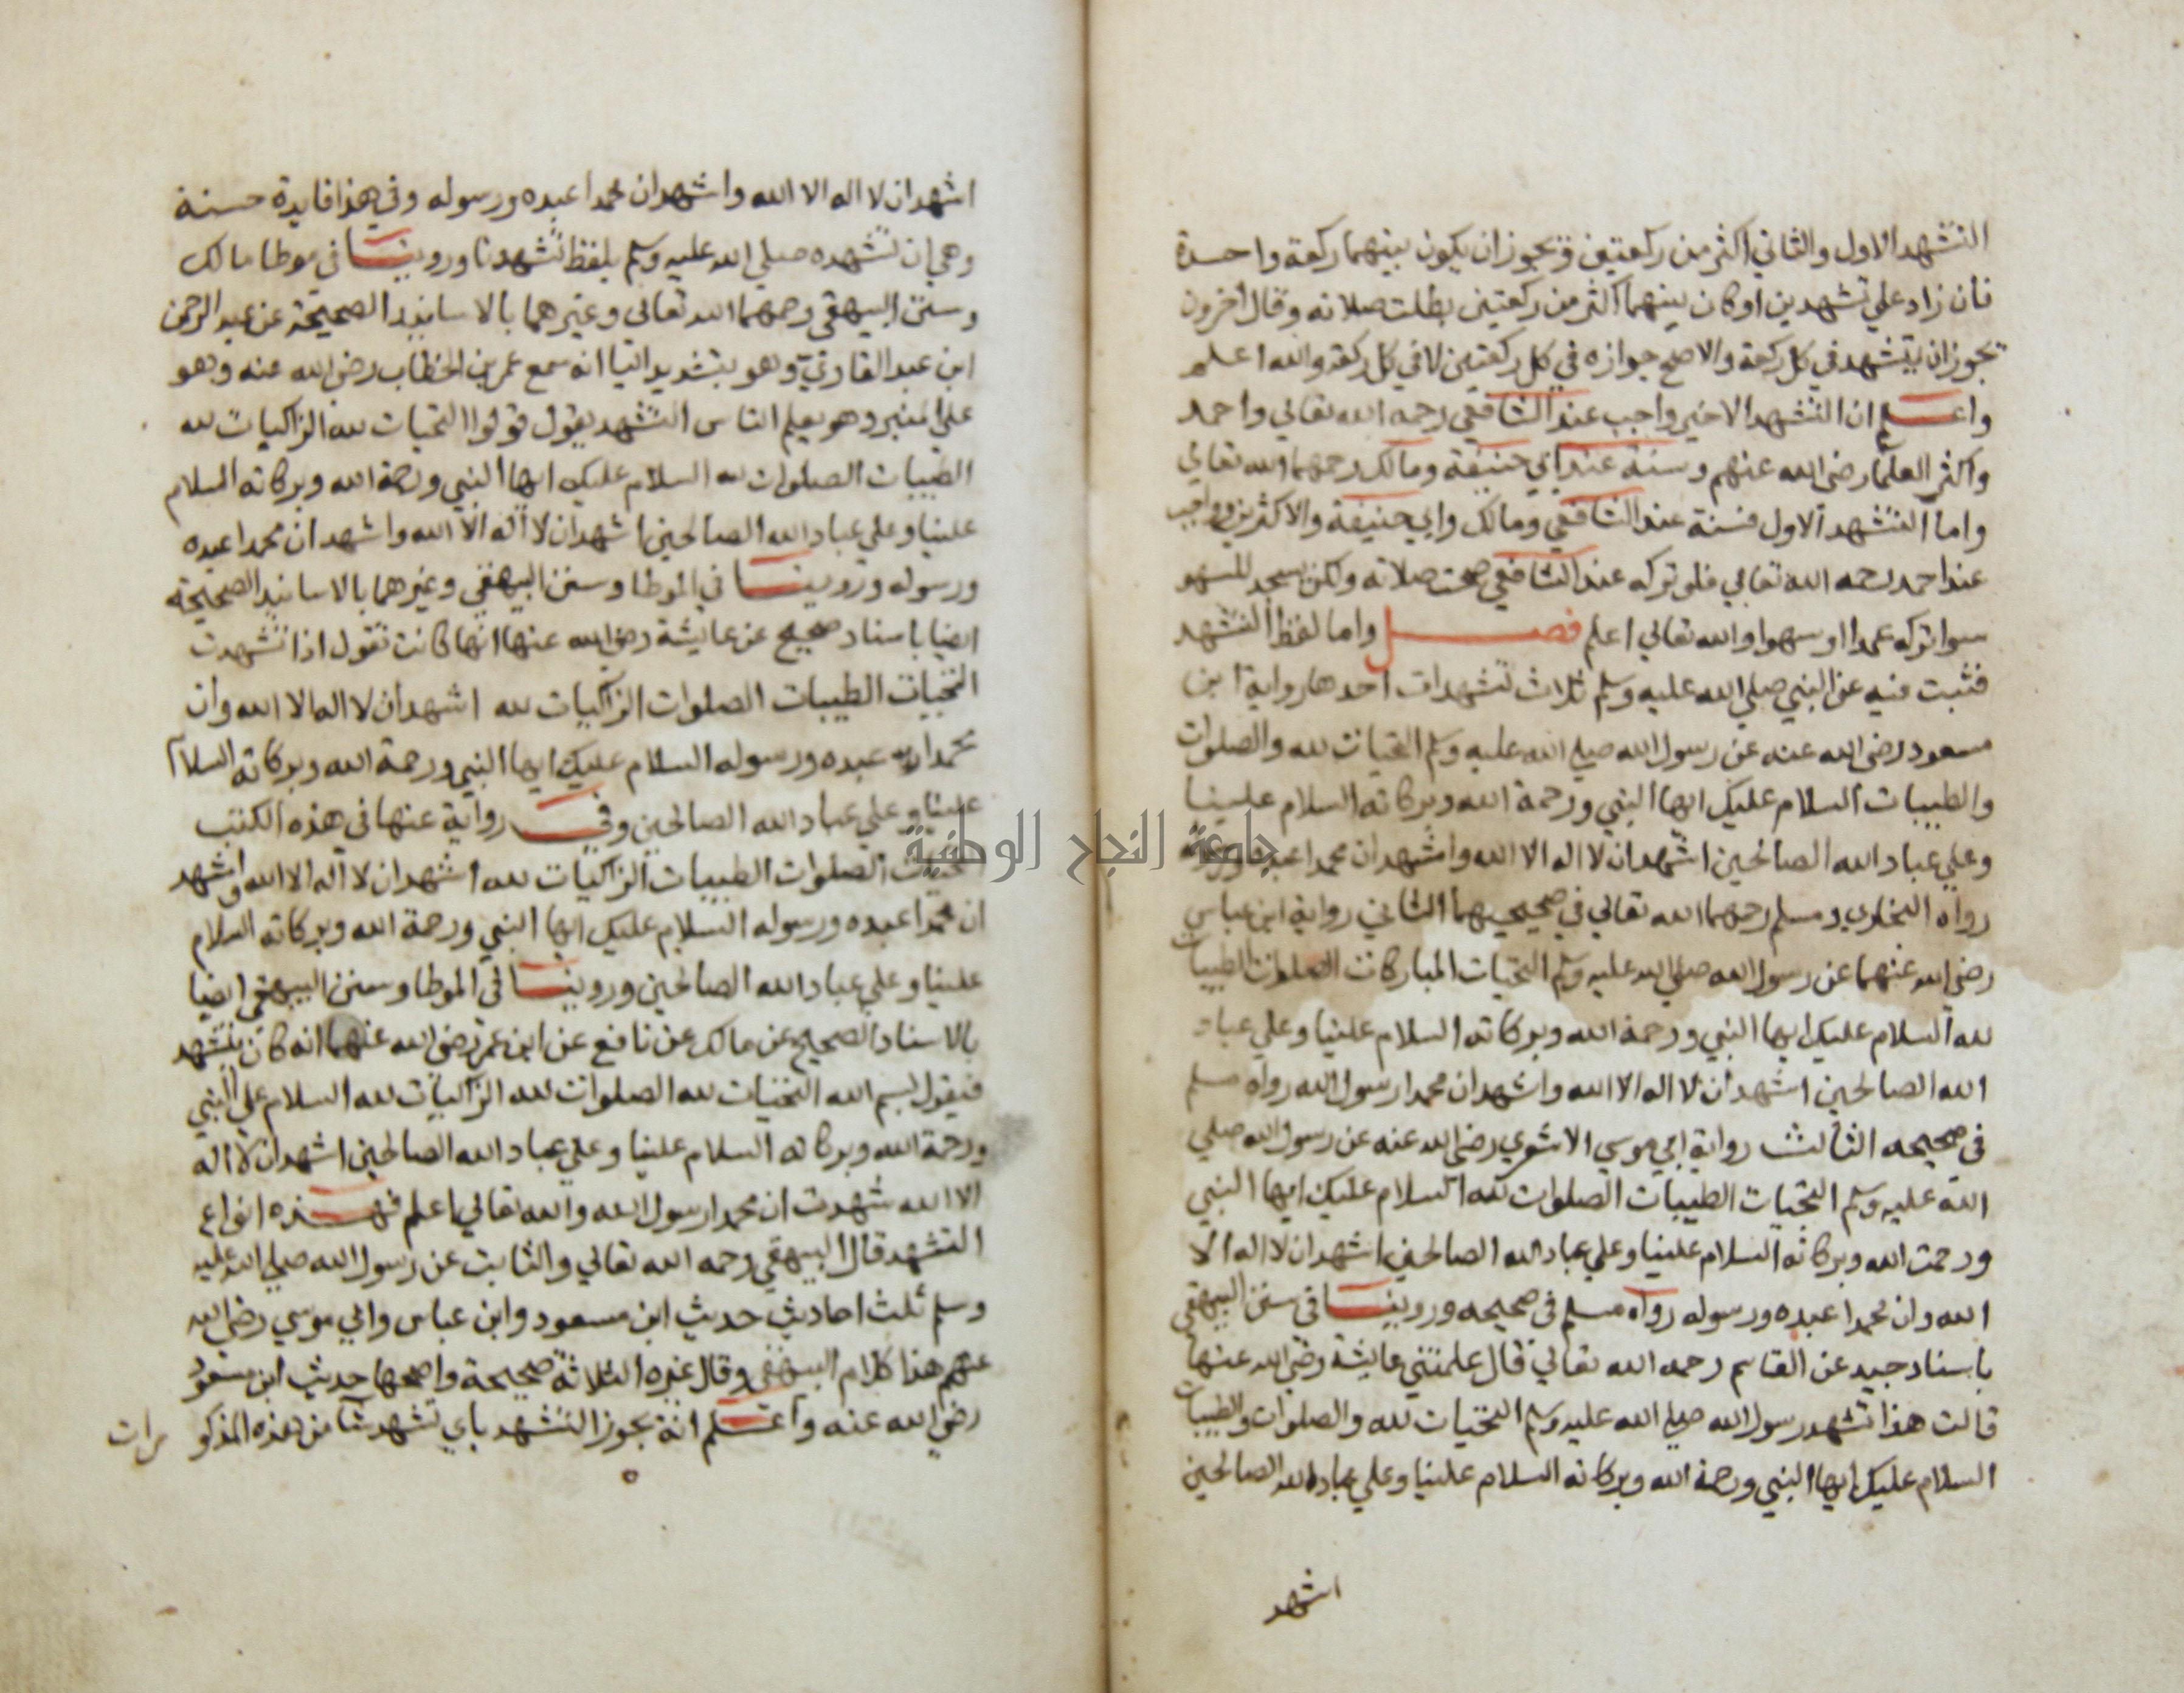 التشهد الاول والثاني اكثر من ركعتين ويجوز ان يكون بينهما ركعة واحدة
فان زاد علي تشهدين او كان بينهما اكثر من ركعتين بطلت صلاته وقال آخرون
يجوز ان يتشهد في كل ركعة والاصح جوازه في كل ركعتين لا في كل ركعة والله اعلم
واعلم ان التشهد الاخير واجب عند الشافعي رحمه الله تعالي واحمد
واكثر العلما رضي الله عنهم وسنة عند ابي حنيفة ومالك رحمهما الله تعالي
واما التشهد الاول فسنة عند الشافعي ومالك وابي حنيفة والاكثرين وواجب
عند احمد رحمه الله تعالي فلو تركه عند الشافعي صحت صلاته ولكن يسجد للسهو
سوا تركه عمدا او سهوا والله تعالي اعلم فصل واما لفظ التشهد
فثبت فيه عن النبي صلي الله عليه وسلم ثلاث تشهدات احدها رواية ابن
مسعود رضي الله عنه عن رسول الله صلي الله عليه وسلم التحيات لله والصلوات
والطيبات السلام عليك ايها النبي ورحمة الله وبركاته السلام علينا
وعلي عباد الله الصالحين اشهد ان لا اله الا الله واشهد ان محمدا عبده ورسوله
رواه البخاري ومسلم رحمهما الله تعالي في صحيحيهما الثاني رواية ابن عباس
رضي الله عنهما عن رسول الله صلي الله عليه وسلم التحيات المباركات الصلوات الطيبات
لله السلام عليك ايها النبي ورحمة الله وبركاته السلام علينا وعلي عباد
الله الصالحين اشهد ان لا اله الا الله واشهد ان محمدا رسول الله رواه مسلم
في صحيحه الثالث رواية ابي موسي الاشعري رضي الله عنه عن رسول الله صلي
الله عليه وسلم التحيات الطيبات الصلوات لله السلام عليك ايها النبي
ورحمت الله وبركاته السلام علينا وعلي عباد الله الصالحين اشهد ان لا اله الا
الله وان محمدا عبده ورسوله رواه مسلم في صحيحه وروينا في سنن البيهقي
باسناد جيد عن القاسم رحمه الله تعالي قال علمتني عايشة رضي الله عنها
قالت هذا تشهد رسول الله صلي الله عليه وسلم التحيات لله والصلوات والطيبات
السلام عليك ايها النبي ورحمة الله وبركاته السلام علينا وعلي عباد الله الصالحين
اشهد
اشهد ان لا اله الا الله واشهد ان محمدا عبده ورسوله وفي هذا فايدة حسنة
وهي ان تشهده صلي الله عليه وسلم بلفظ تشهدنا وروينا في موطا مالك
وسنن البيهقي رحمهما الله تعالي وغيرهما بالاسانيد الصحيحة عن عبد الرحمن
ابن عبد القاري وهو بتشديد اليا انه سمع عمر بن الخطاب رضي الله عنه وهو
علي المنبر وهو يعلم الناس التشهد يقول قولوا التحيات لله الزاكيات لله
الطيبات الصلوات لله السلام عليك ايها النبي ورحمة الله وبركاته السلام
علينا وعلي عباد الله الصالحين اشهد ان لا اله الا الله واشهد ان محمدا عبده
ورسوله وروينا في الموطا وسنن البيهقي وغيرهما بالاسانيد الصحيحة
ايضا باسناد صحيح عن عايشة رضي الله عنها انها كانت تقول اذا تشهدت
التحيات الطيبات الصلوات الزاكيات لله اشهد ان لا اله الا الله وان
محمدا عبده ورسوله السلام عليك ايها النبي ورحمة الله وبركاته السلام
علينا وعلي عباد الله الصالحين وفي رواية عنها في هذه الكتب
التحيات الصلوات الطيبات الزاكيات لله اشهد ان لا اله الا الله واشهد
ان محمدا عبده ورسوله السلام عليك ايها النبي ورحمة الله وبركاته السلام
علينا وعلي عباد الله الصالحين وروينا في الموطا وسنن البيهقي ايضا
بالاسناد الصحيح عن مالك عن نافع عن ابن عمر رضي الله عنهما انه كان يتشهد
فيقول بسم الله التحيات لله الصلوات لله الزاكيات لله السلام علي النبي
ورحمة الله وبركاته السلام علينا وعلي عباد الله الصالحين اشهد ان لا اله
الا الله شهدت ان محمدا رسول الله والله تعالي اعلم فهذه انواع
التشهد قال البيهقي رحمه الله تعالي والثابت عن رسول الله صلي الله عليه
وسلم ثلث احاديث حديث ابن مسعود وابن عباس وابي موسي رضي الله
عنهم هذا كلام البيهقي وقال غيره الثلاثة صحيحة واصحها حديث ابن مسعود
رضي الله عنه واعلم انه يجوز التشهد باي تشهد شا من هذه المذكو
رات
جامعة النجاح الوطنية